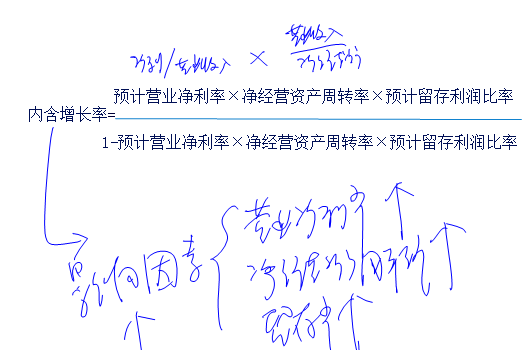 净利/营业收入 × 营业收入/净经营资产
预计营业净利率×净经营资产周转率×预计留存利润比率
内含增长率=
1-预计营业净利率×净经营资产周转率×预计留存利润比率
营业净利率↑
影响因素 { 净经营资产周转率↑
↑ 留存率↑